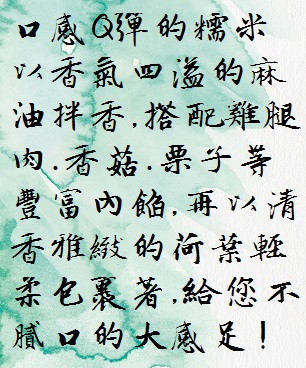 口感Q彈的糯米
以香氣四溢的麻
油拌香,搭配雞腿
肉.香菇.栗子等
豐富內餡,再以清
香雅緻的荷葉輕
柔包裹著,給您不
膩口的大感足!